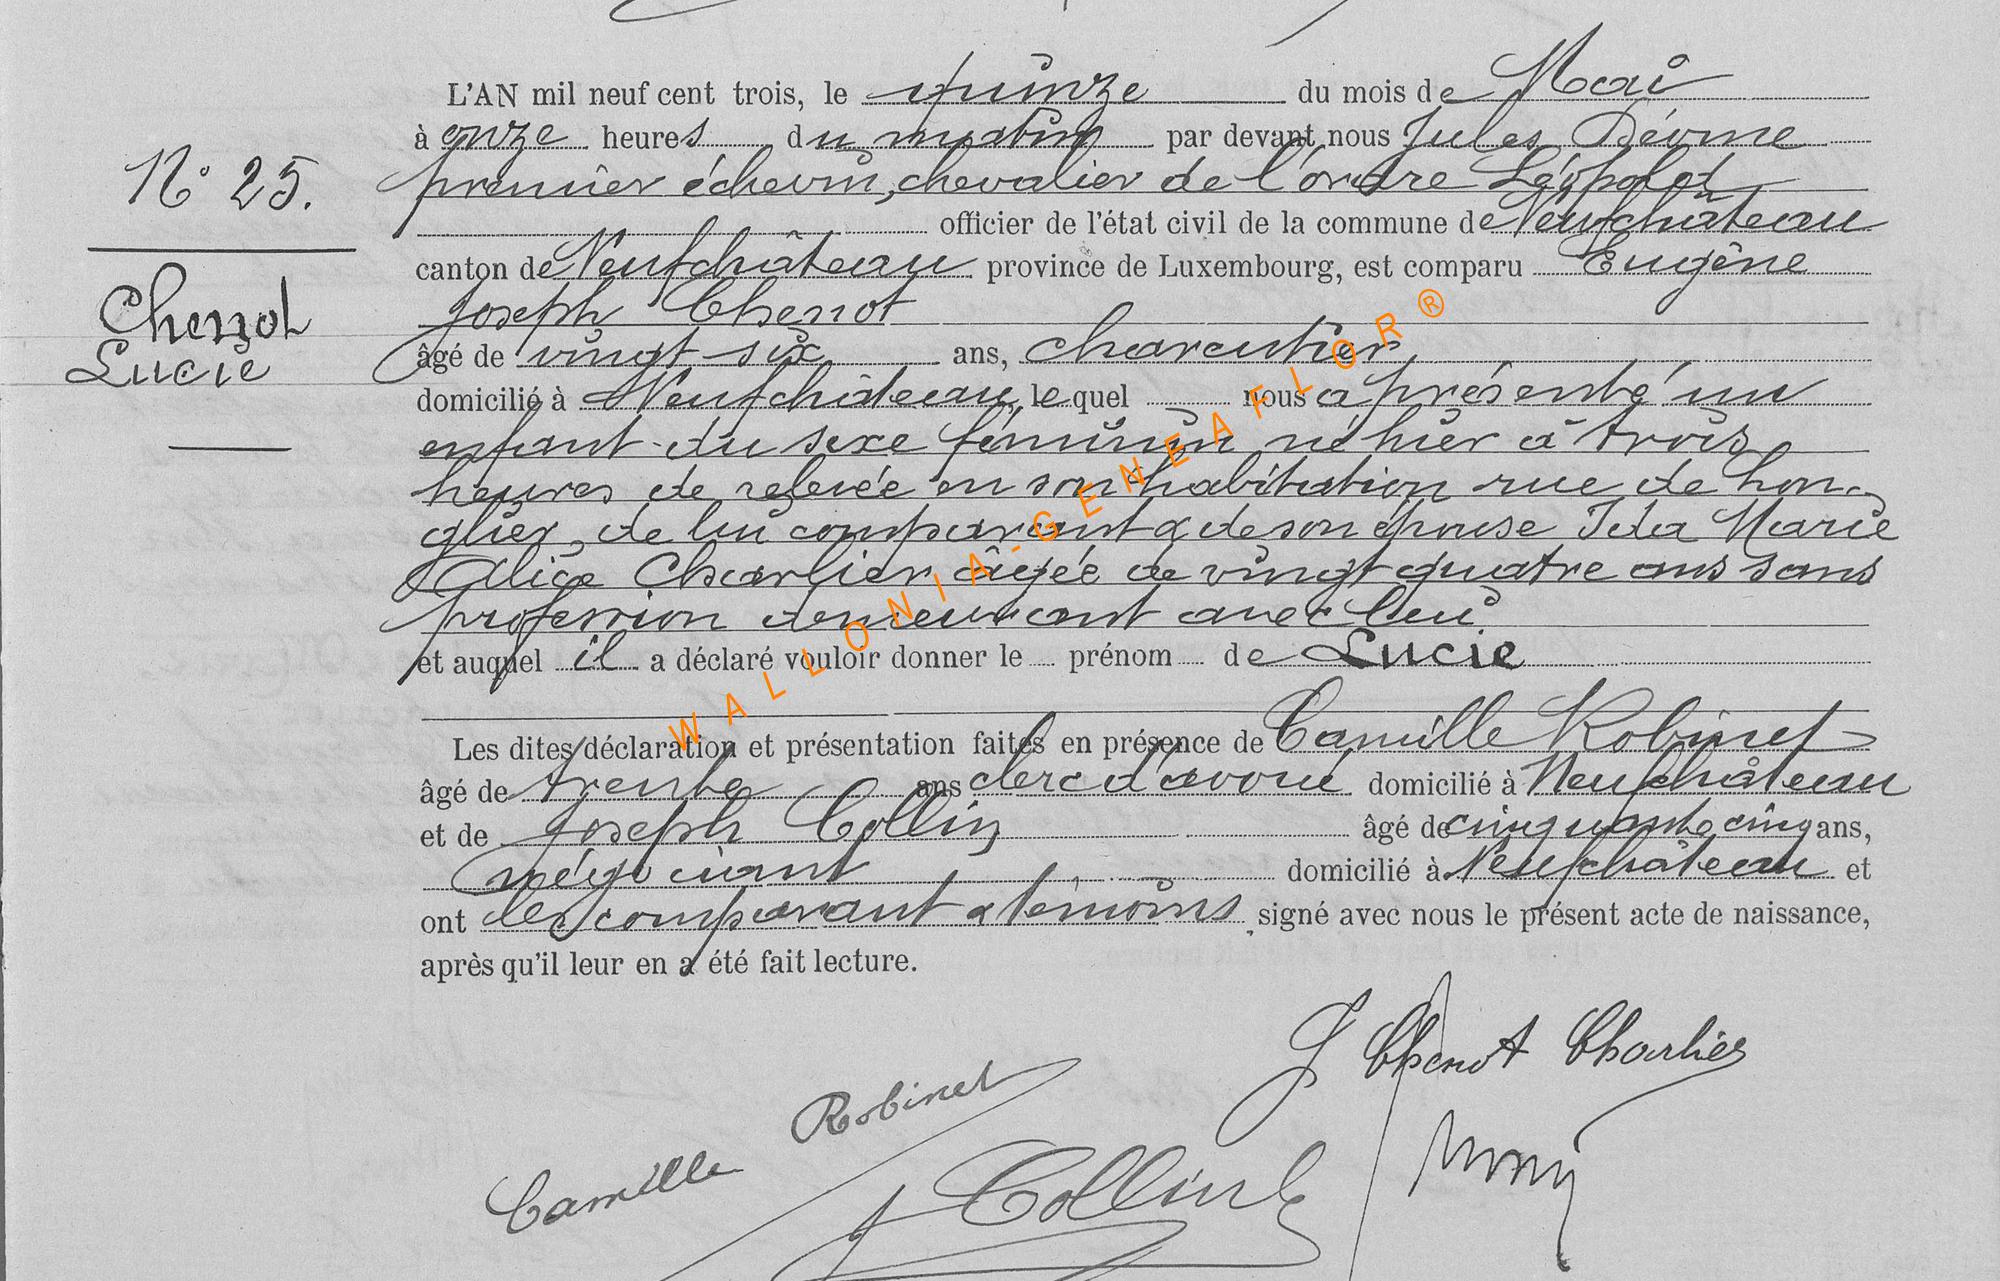 L'AN mil neuf cent trois, le quinze du mois de Mai
à onze heures du matin par devant nous Jules
N° 25.
premier échevin, chevalier de l'ordre Léopold
officier de l'état civil de la commune de Neufchâteau
canton de Neufchâteau province de Luxembourg, est comparu Eugène
Chenot
Joseph Chenot
Lucie
âgé de vingt-six ans, charcutier,
domicilié à Neufchâteau, lequel nous a présenté un
enfant du sexe féminin né hier à trois
heures de relevée en son habitation rue de Lon-
glier, de lui comparant & de son épouse Ida Marie
Alice Charlier âgée de vingt quatre ans sans
profession demeurant avec lui
et auquel il a déclaré vouloir donner le prénom de Lucie
Les dites déclaration et présentation faites en présence de Camille Robinet
âgé de trente ans clerc d'avoué domicilié à Neufchâteau
et de Joseph Collin âgé de cinquante cinq ans,
négociant domicilié à Neufchâteau et
ont les comparant & témoins signé avec nous le présent acte de naissance,
après qu'il leur en a été fait lecture.
J Chenot Charlier
Camille Robinet
J Collin
WALLONIA-GENEAFLOR®